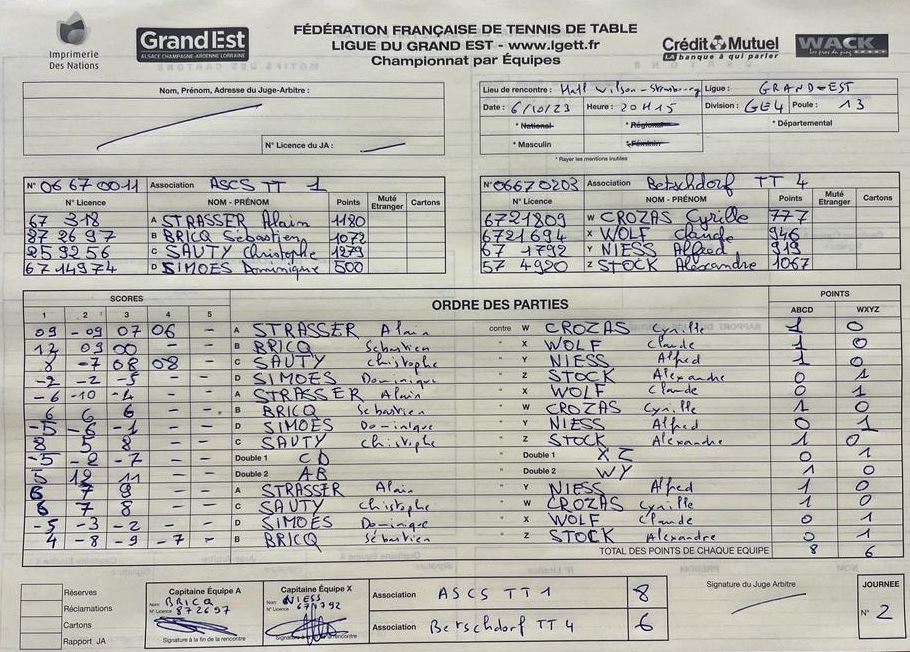 Imprimerie
Des Nations
GrandEst
ALSACE CHAMPAGNE-ARDENNE LORRAINE
FÉDÉRATION FRANÇAISE DE TENNIS DE TABLE
LIGUE DU GRAND EST - www.lgett.fr
Championnat par Équipes
Crédit Mutuel
LA banque à qui parler
WACK
Nom, Prénom, Adresse du Juge-Arbitre :
N° Licence du JA :
Lieu de rencontre : Hall Wilson - Strasbourg Ligue : GRAND-EST
Date : 6/10/23 Heure : 20H15 Division : GE4 Poule : 13
* National * Régional * Départemental
* Masculin * Féminin
* Rayer les mentions inutiles
N° 06670011 Association ASCS TT 1
N° Licence NOM - PRÉNOM Points Muté Etranger Cartons
67 318 A STRASSER Alain 1180
87 26 97 B BRICQ Sébastien 1072
259256 C SAUTY Christophe 1279
67 14974 D SIMOES Dominique 500
N° 06670203 Association Betschdorf TT 4
N° Licence NOM - PRÉNOM Points Muté Etranger Cartons
6721809 W CROZAS Cyrille 777
6721694 X WOLF Claude 946
67 1792 Y NIESS Alfred 919
57 4920 Z STOCK Alexandre 1067
SCORES ORDRE DES PARTIES POINTS
1 2 3 4 5 ABCD WXYZ
09 -09 07 06 - A STRASSER Alain contre W CROZAS Cyrille 1 0
12 09 00 - - B BRICQ Sébastien " X WOLF Claude 1 0
8 -7 08 08 - C SAUTY Christophe " Y NIESS Alfred 1 0
-2 -2 -5 - - D SIMOES Dominique " Z STOCK Alexandre 0 1
-6 -10 -4 - - A STRASSER Alain " X WOLF Claude 0 1
6 6 6 - - B BRICQ Sébastien " W CROZAS Cyrille 1 0
-5 -6 -1 - - D SIMOES Dominique " Y NIESS Alfred 0 1
8 5 8 - - C SAUTY Christophe " Z STOCK Alexandre 1 0
-5 -2 -7 - - Double 1 CD " Double 1 XZ 0 1
5 12 11 - - Double 2 AB " Double 2 WY 1 0
6 7 9 - - A STRASSER Alain " Y NIESS Alfred 1 0
6 7 8 - - C SAUTY Christophe " W CROZAS Cyrille 1 0
-5 -3 -2 - - D SIMOES Dominique " X WOLF Claude 0 1
4 -8 -9 -7 - B BRICQ Sébastien " Z STOCK Alexandre 0 1
TOTAL DES POINTS DE CHAQUE EQUIPE 8 6
Réserves
Réclamations
Cartons
Rapport JA
Capitaine Équipe A
Nom BRICQ
N° Licence 872697
Signature à la fin de la rencontre
Capitaine Équipe X
Nom NIESS
N° Licence 671792
Association ASCS TT 1 8
Association Betschdorf TT 4 6
Signature du Juge Arbitre
JOURNEE
N° 2